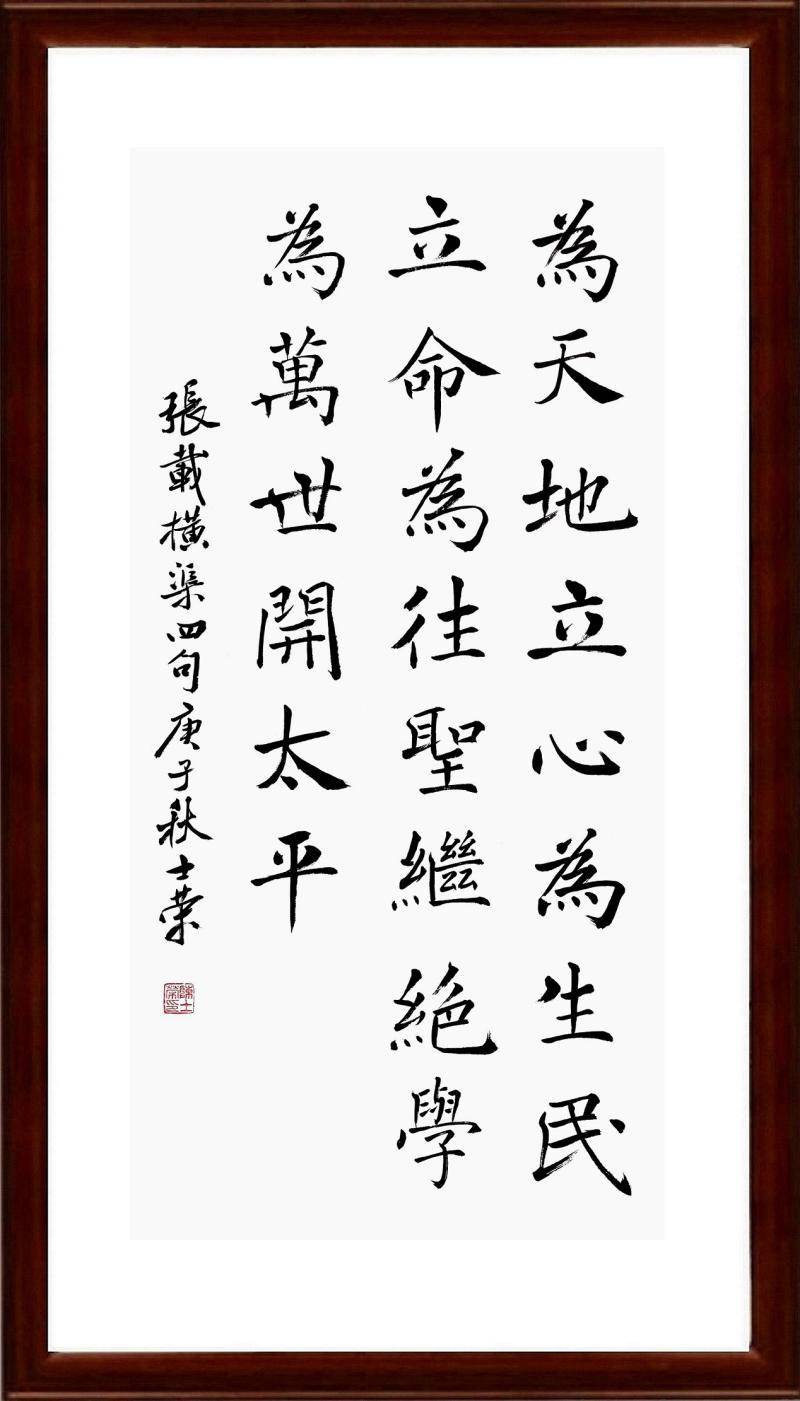 為天地立心為生民
立命為往聖繼絕學
為萬世開太平
張載橫渠四句庚子秋士荣
陳士荣印